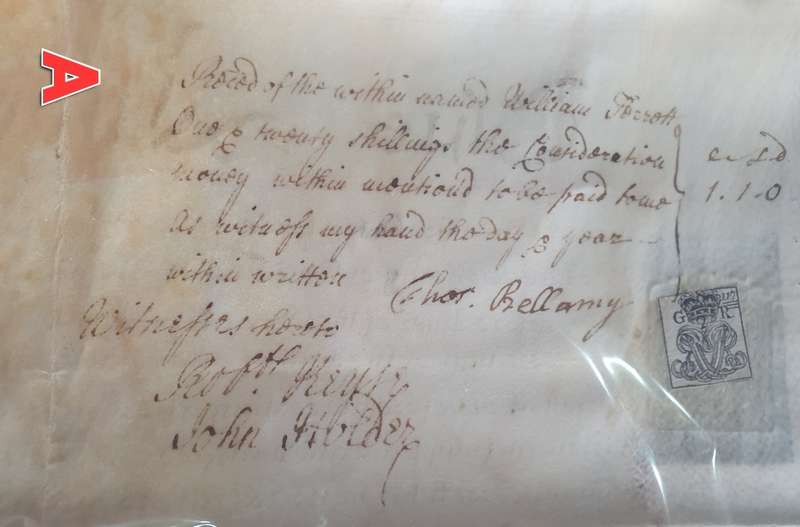 A
Reced of the within named William Perrott
One & twenty shillings the Consideration
money within mentiond to be paid to me
as witness my hand the day & year
within written
1.1.0
Thos. Bellamy
Witnesses hereto
John Holder
G R